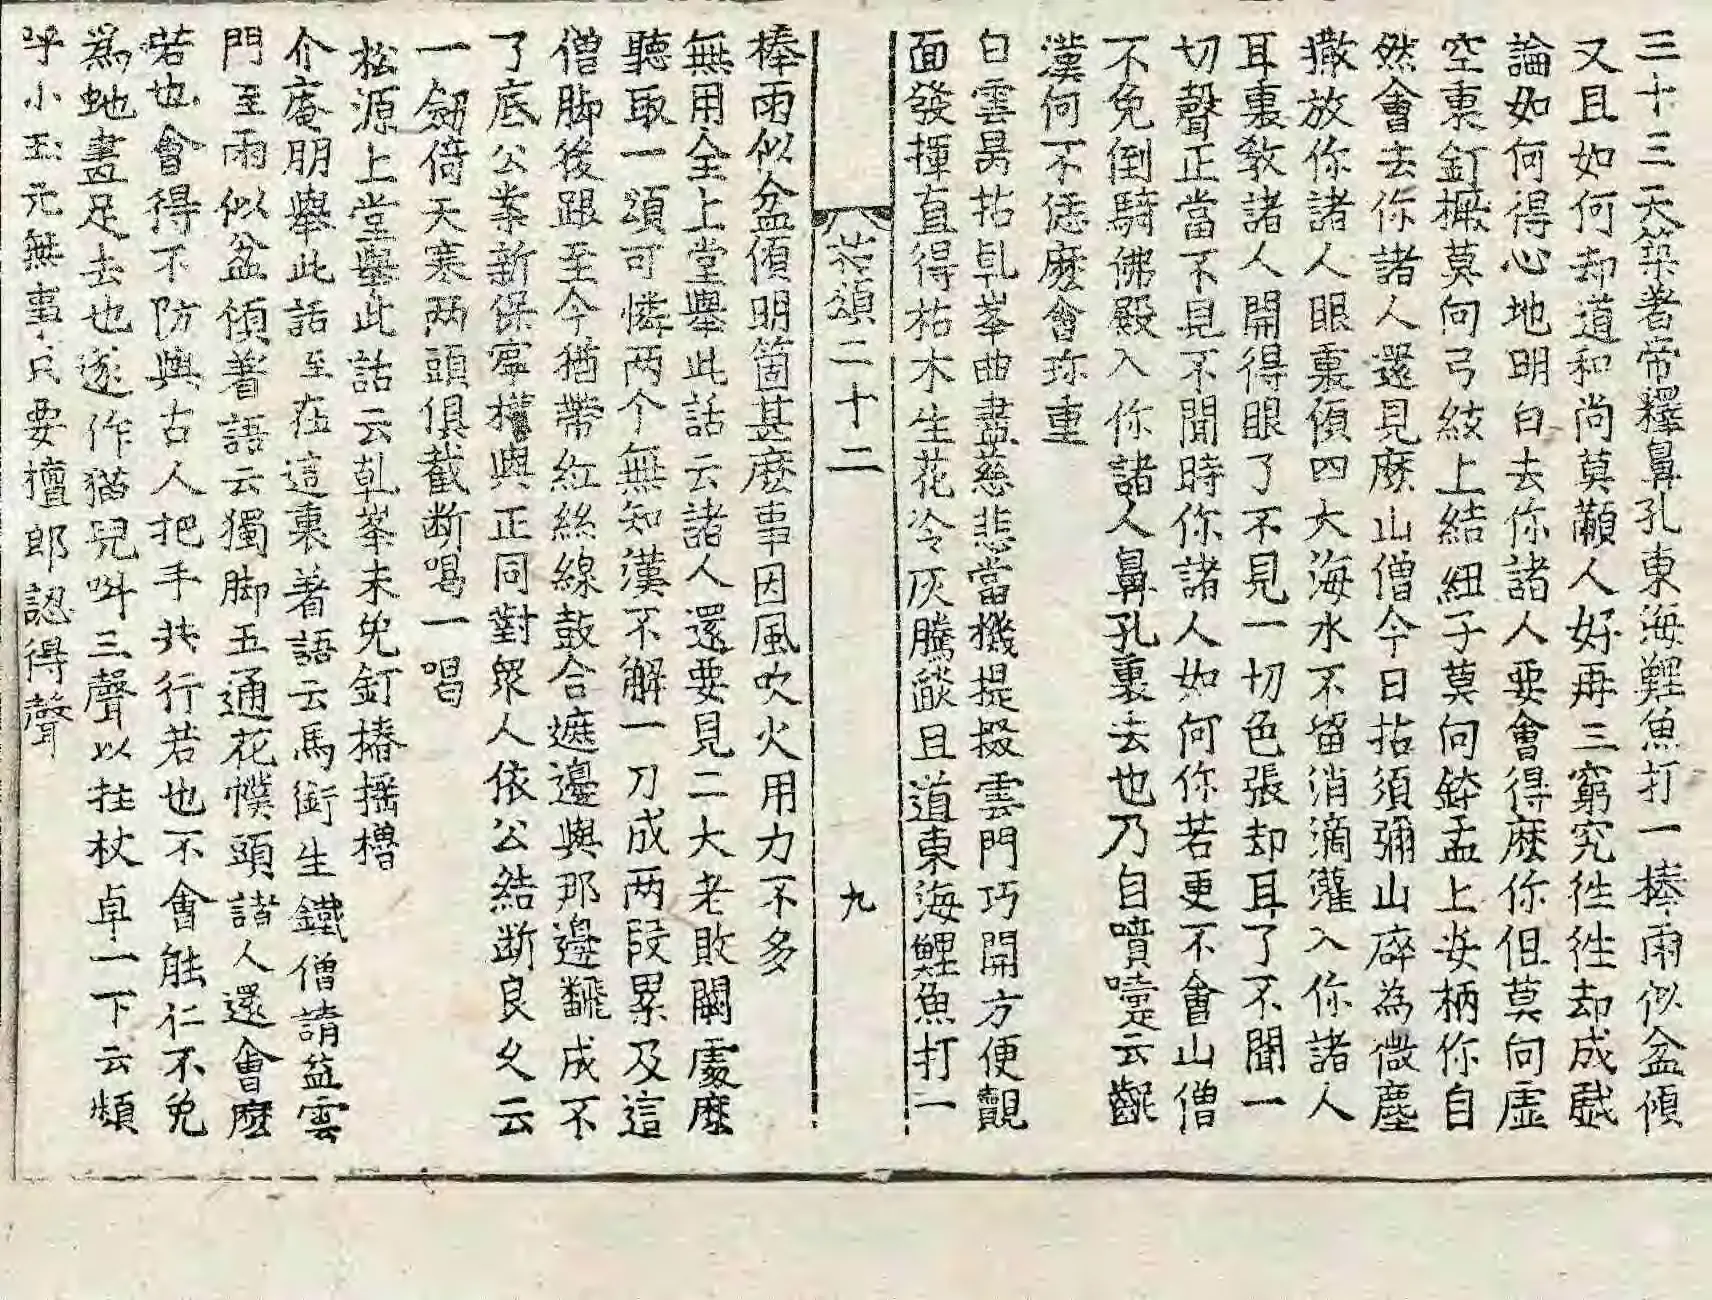 三十三天築著帝釋鼻孔東海鯉魚打一棒雨似盆傾
又且如何却道和尚莫瞞人好再三窮究徃徃却成戱
論如何得心地明白去你諸人要會得麽你但莫向虛
空裏釘橛莫向弓絃上結紐子莫向鉢盂上安柄你自
然會去你諸人還見麽山僧今日拈須彌山碎為微塵
撒放你諸人眼裏傾四大海水不留消滴灌入你諸人
耳裏敎諸人開得眼了不見一切色張却耳了不聞一
切聲正當不見不聞時你諸人如何你若更不會山僧
不免倒騎佛殿入你諸人鼻孔裏去也乃自噴嚏云齪
漢何不恁麽會珎重
白雲昺拈乹峯曲盡慈悲當機提掇雲門巧開方便覿
面發揮直得枯木生花冷灰騰燄且道東海鯉魚打一
頌二十二
九
棒雨似盆傾明箇甚麽事因風吹火用力不多
無用全上堂舉此話云諸人還要見二大老敗闕處麽
聽取一頌可憐两个無知漢不解一刀成两段累及這
僧脚後跟至今猶帶紅絲線鼓合遮邊與那邊飜成不
了底公案新保寧權與正同對衆人依公結断良久云
一釼倚天寒两頭俱截断喝一喝
松源上堂舉此話云乹峯未免釘樁搖櫓
介庵朋舉此話至在這裏著語云馬銜生鐵僧請益雲
門至雨似盆傾著語云獨脚五通花幞頭諸人還會麽
若也會得不防與古人把手共行若也不會能仁不免
為虵畫足去也遂作猫兒呌三聲以拄杖卓一下云頻
呼小玉元無事只要檀郎認得聲